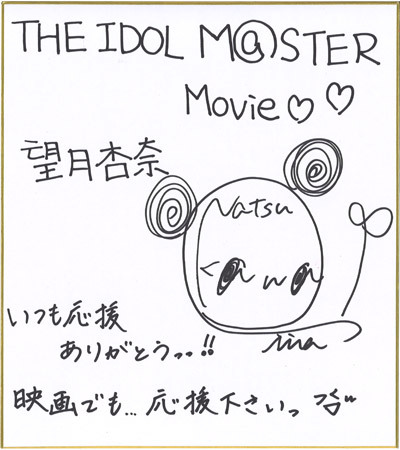 THE IDOL M@STER
Movie♡♡
望月杏奈
Natsu
kawa
rina
いつも応援
ありがとうっっ!!
映画でも…応援下さいっ